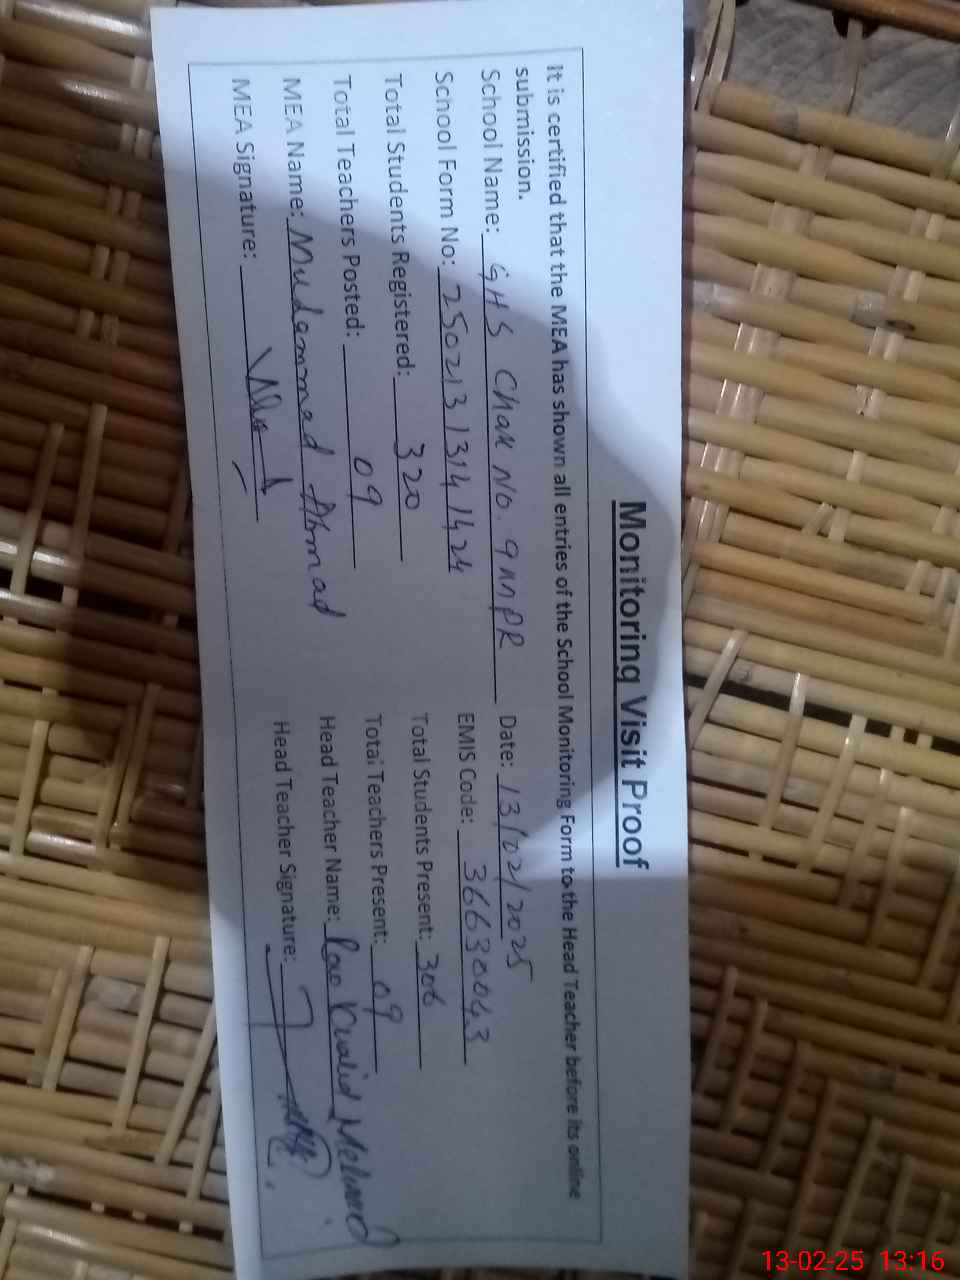 Monitoring Visit Proof
It is certified that the MEA has shown all entries of the School Monitoring Form to the Head Teacher before its online
submission.
School Name: GHS Chak No. 9 Date: 13/02/2025
School Form No: 25021313141424 EMIS Code: 36630043
Total Students Registered: 320 Total Students Present: 306
Total Teachers Posted: 09 Total Teachers Present: 09
MEA Name: Muhammad Ahmad Head Teacher Name: Rao Khalid Mehmood
MEA Signature: Head Teacher Signature:
13-02-25 13:16